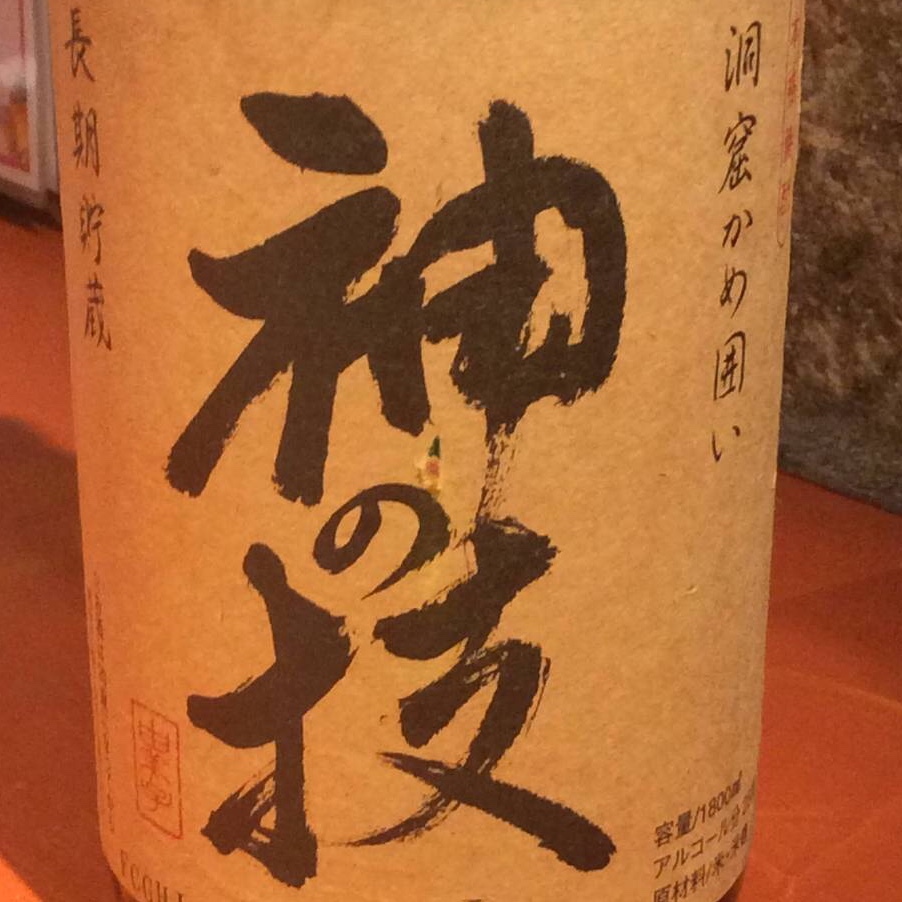 洞窟かめ囲い
神の技
長期貯蔵
容量/1800ml
アルコール分
原材料/米・米